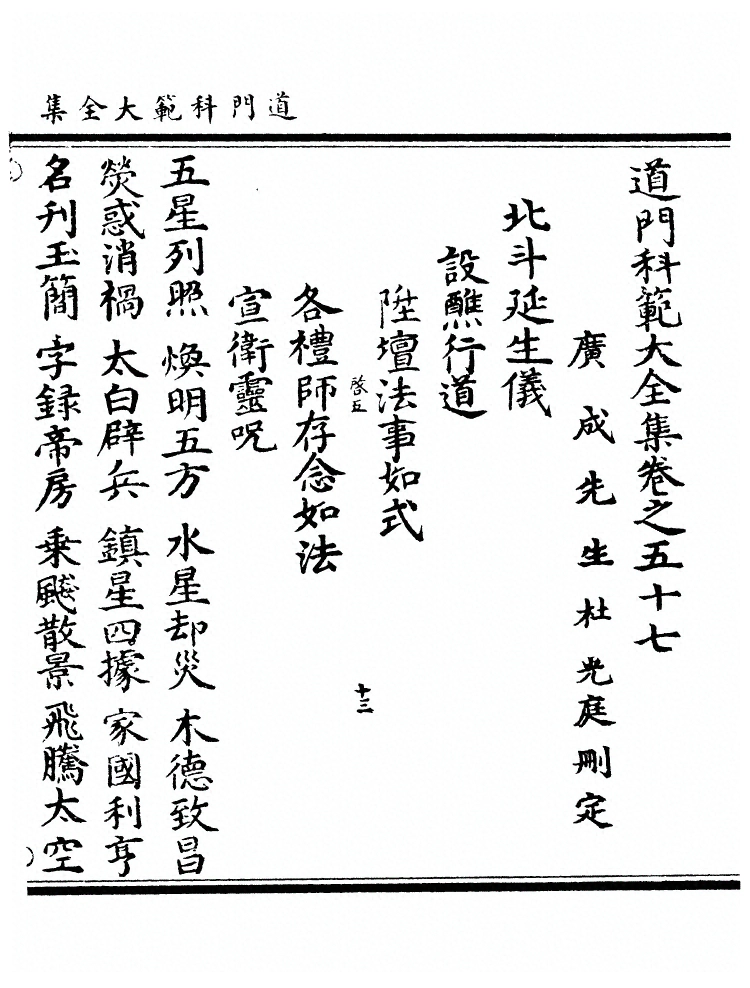 道門科範大全集
道門科範大全集卷之五十七
廣成先生杜光庭刪定
北斗延生儀
設醮行道
陞壇法事如式
啓五
十三
各禮師存念如法
宣衛靈呪
五星列照 煥明五方 水星却災 木德致昌
熒惑消禍 太白辟兵 鎮星四據 家國利亨
名刊玉簡 字録帝房 乘飈散景 飛騰太空